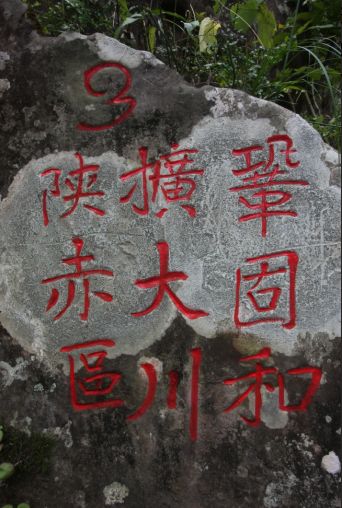 3
鞏固和
擴大川
陕赤區